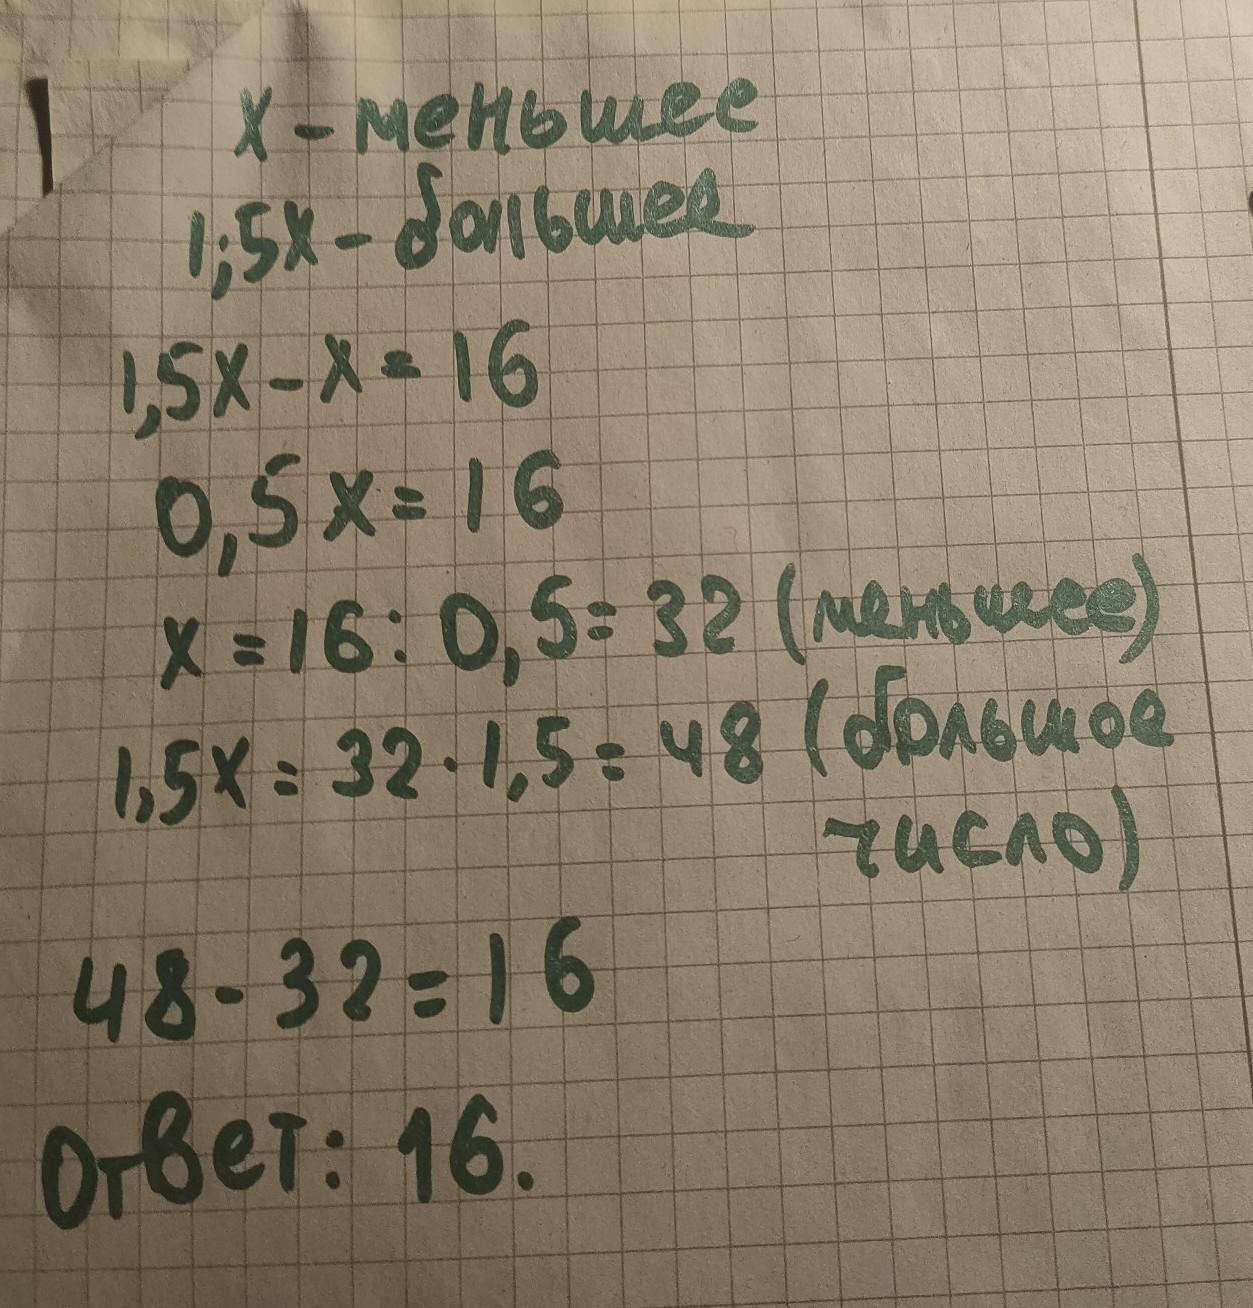 x - меньшее
1,5x - большее
1,5x - x = 16
0,5x = 16
x = 16 : 0,5 = 32 (меньшее)
1,5x = 32 · 1,5 = 48 (большое
число)
48 - 32 = 16
Ответ: 16.